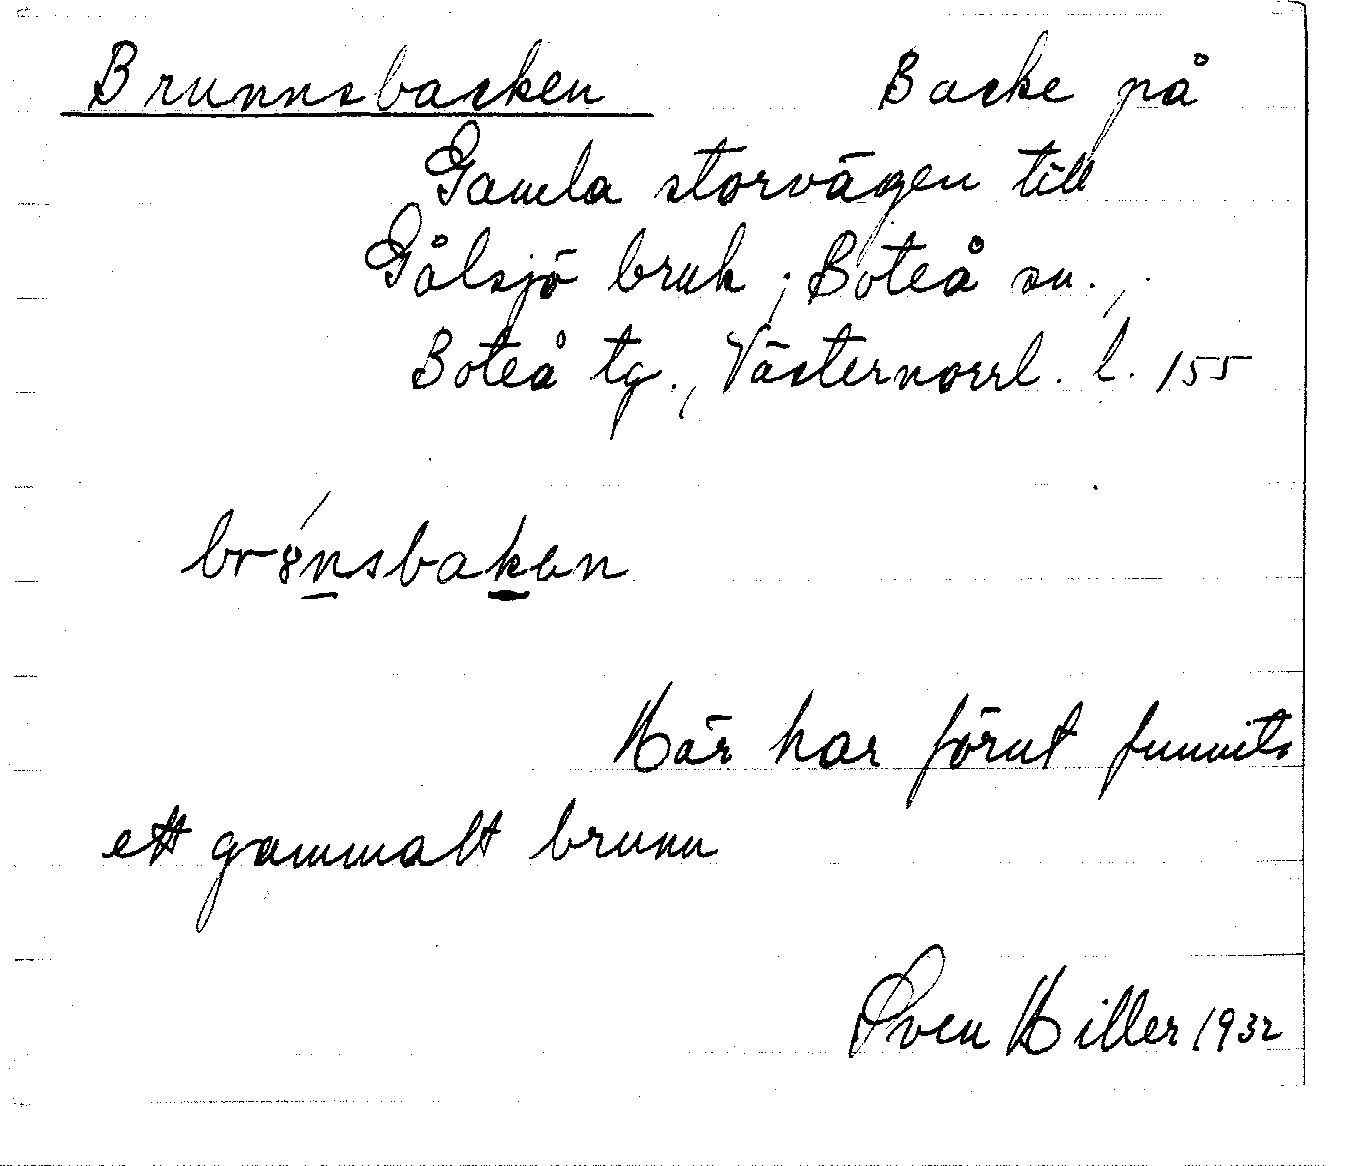 Brunnsbacken Backe på
Gamla storvägen till
Gålsjö bruk; Boteå sn.,
Boteå tg., Västernorrl. l. 155
brȣ́nsbakən
Här har förut funnits
ett gammalt brunn
Sven Hiller 1932